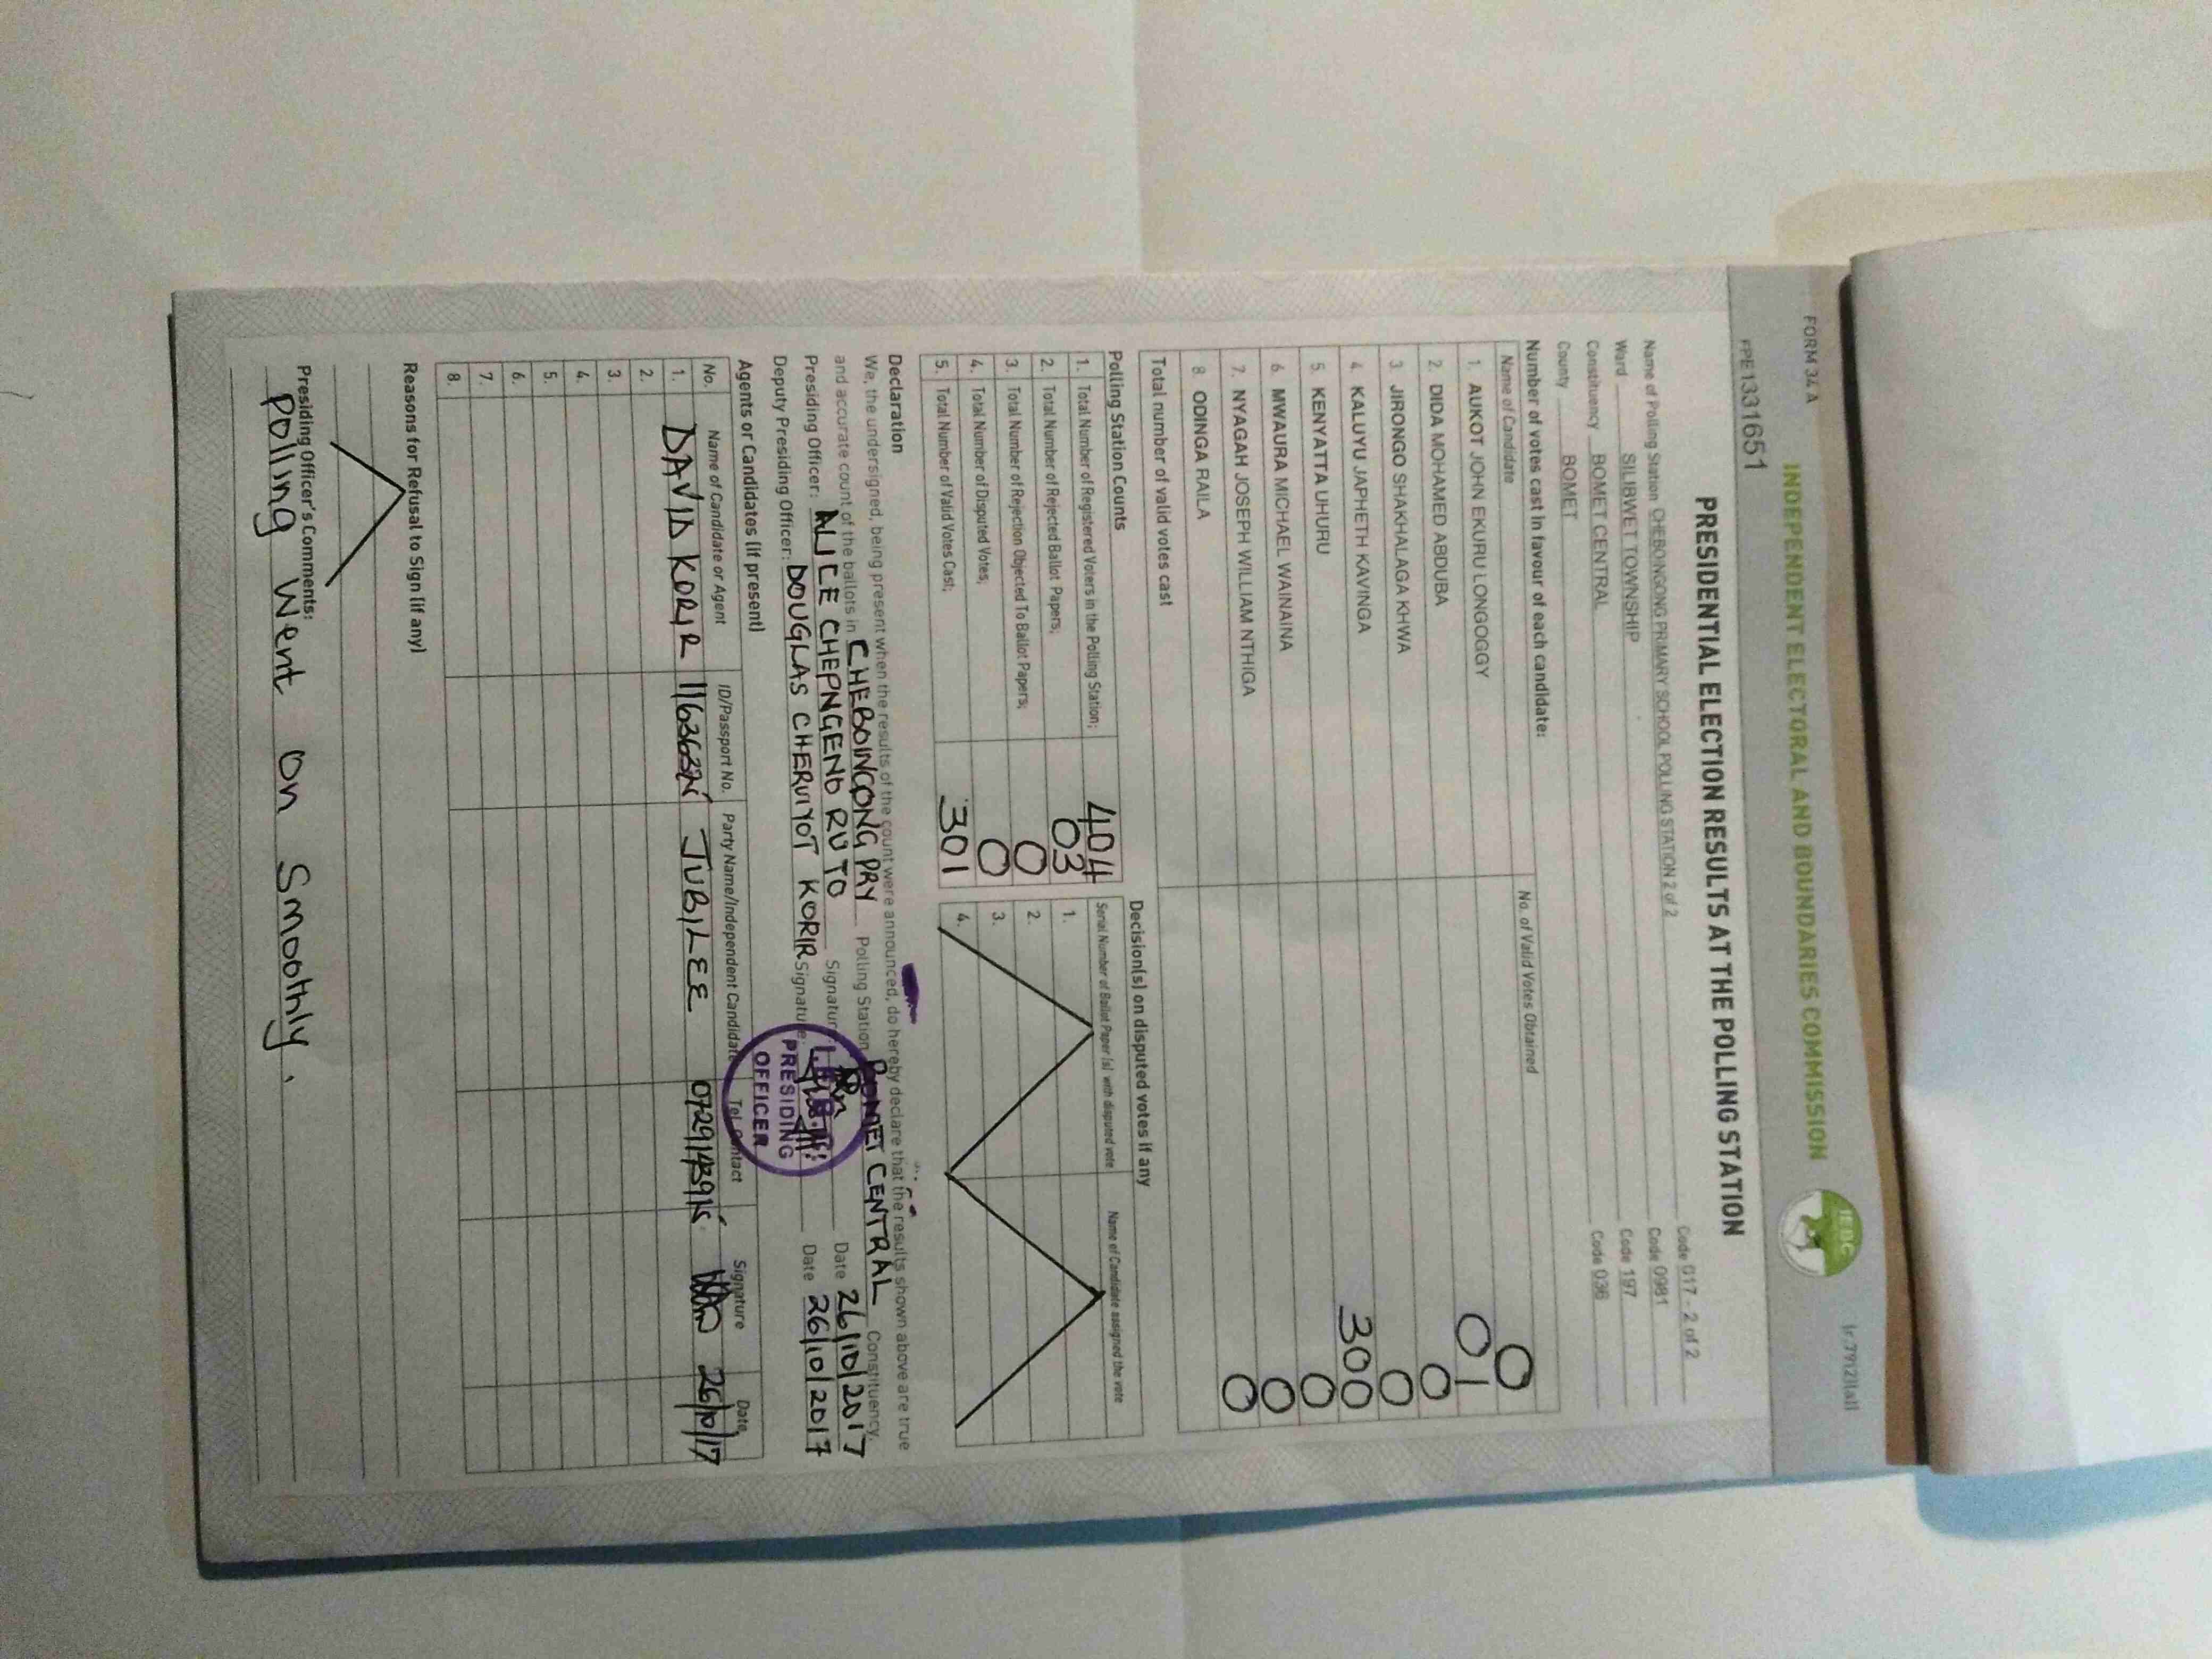 FORM 34 A
INDEPENDENT ELECTORAL AND BOUNDARIES COMMISSION
IEBC
PRESIDENTIAL ELECTION RESULTS AT THE POLLING STATION
Name of Polling Station CHEBONGONG PRIMARY SCHOOL POLLING STATION 2 of 2 Code 017 - 2 of 2
Ward SILIBWET TOWNSHIP Code 0981
Constituency BOMET CENTRAL Code 197
County BOMET Code 036
Number of votes cast in favour of each candidate:
Name of Candidate No. of Valid Votes Obtained
1. AUKOT JOHN EKURU LONGOGGY 0
2. DIDA MOHAMED ABDUBA 01
3. JIRONGO SHAKHALAGA KHWA 0
4. KALUYU JAPHETH KAVINGA 0
5. KENYATTA UHURU 300
6. MWAURA MICHAEL WAINAINA 0
7. NYAGAH JOSEPH WILLIAM NTHIGA 0
8. ODINGA RAILA 0
Total number of valid votes cast
Polling Station Counts
1. Total Number of Registered Voters in the Polling Station; 404
2. Total Number of Rejected Ballot Papers; 03
3. Total Number of Rejection Objected To Ballot Papers; 0
4. Total Number of Disputed Votes; 0
5. Total Number of Valid Votes Cast; 301
Decision(s) on disputed votes if any
Serial Number of Ballot Paper (s) with disputed vote Name of Candidate assigned the vote
1.
2.
3.
4.
Declaration
We, the undersigned, being present when the results of the count were announced, do hereby declare that the results shown above are true
and accurate count of the ballots in CHEBOINGONG PRY Polling Station BOMET CENTRAL Constituency.
Presiding Officer: ALICE CHEPNGENO RUTO Signature Date 26/10/2017
Deputy Presiding Officer: DOUGLAS CHERUIYOT KORIR Signature Date 26/10/2017
PRESIDING
OFFICER
Agents or Candidates (if present)
No. Name of Candidate or Agent ID/Passport No. Party Name/Independent Candidate Tel. Contact Signature Date
1. DAVID KORIR JUBILEE 26/10/17
2.
3.
4.
5.
6.
7.
8.
Reasons for Refusal to Sign (if any)
Presiding Officer's Comments:
Polling Went on Smoothly.